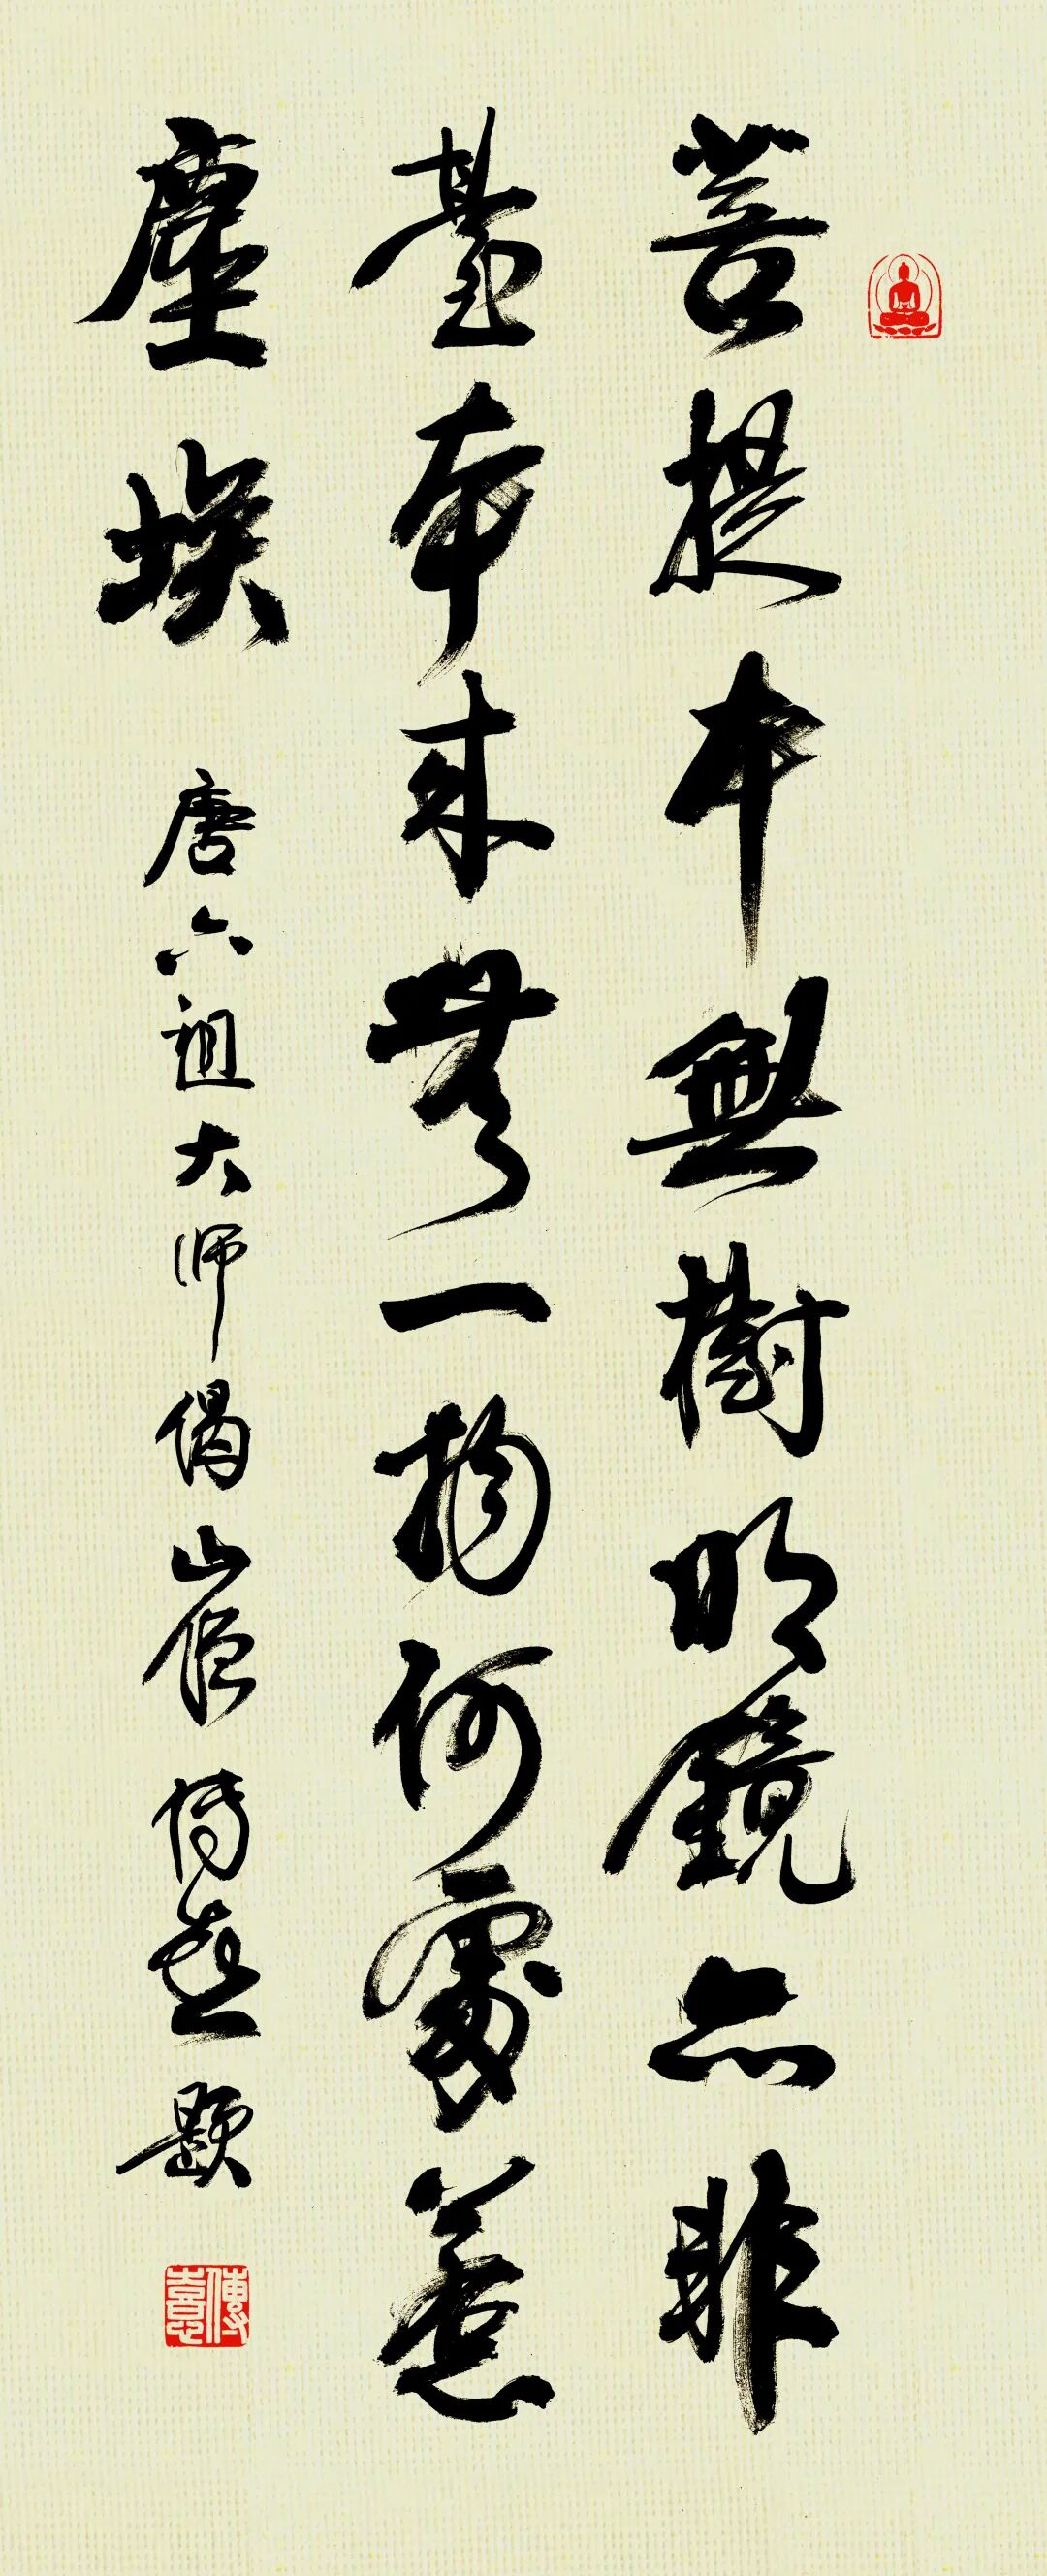 菩提本無樹明鏡亦非
臺本來無一物何處惹
塵埃
唐六祖大师偈山僧传喜題
傳喜